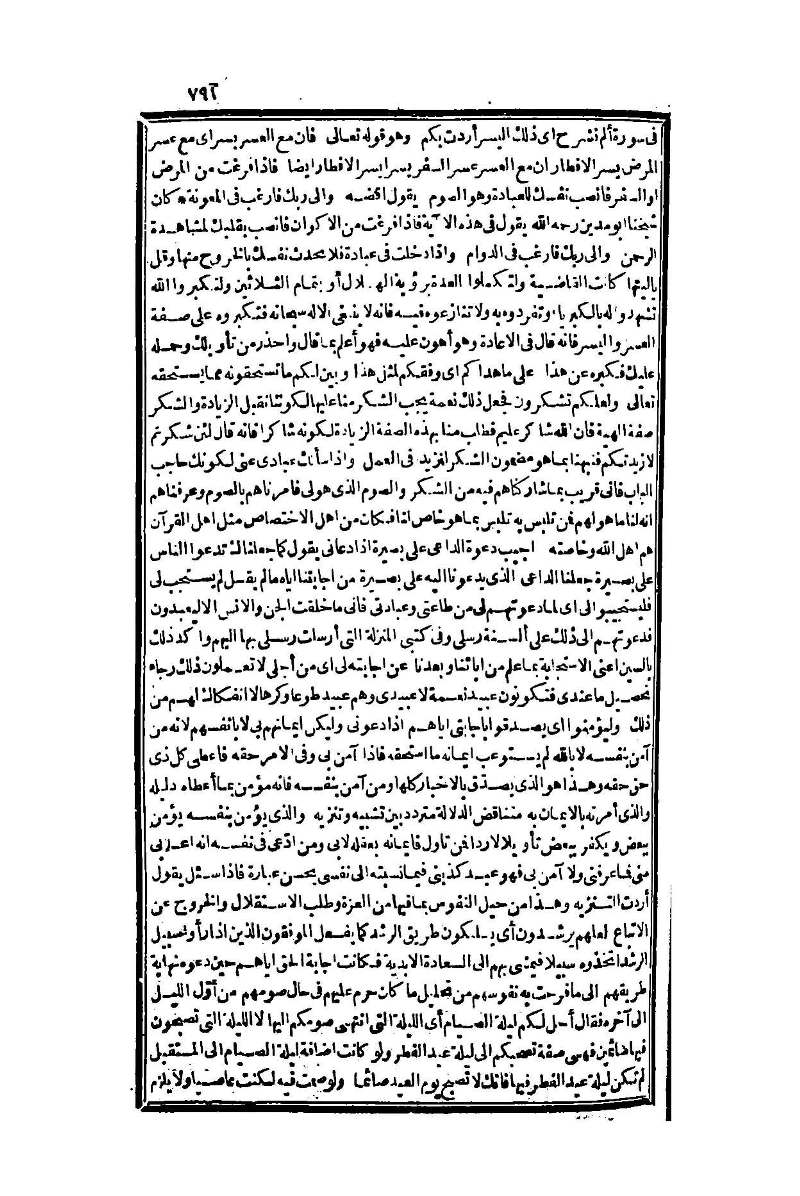 ٧٩٢
فى سورة ألم نشرح اى ذلك اليسر أردت بكم وهو قوله تعالى فان مع العسر يسرا اى مع عسر
المرض يسر الافطار ان مع العسر عسر السفر يسرا يسر الافطار ايضا فاذا فرغت من المرض
او السفر فانصب نفسك للعبادة وهو الصوم يقول اقضه والى ربك فارغب فى المعونة * كان
شيخنا ابو مدين رحمه الله يقول فى هذه الاآية فاذا فرغت من الاكوان فانصب بقلبك لمشاهدة
الرحمن والى ربك فارغب فى الدوام واذا دخلت فى عبادة فلا تحدث نفسك بالخروج منها وقل
ياليتها كانت القاضية ولتكملوا العدة برؤية الهلال أو بتمام الثلاثين ولتكبروا الله
تشهدوا له بالكبرياء وتفردوه به ولا تنازعوه فيه فانه لا ينبغى الا له سبحانه فتكبروه على صفة
العسر واليسر فانه قال فى الاعادة وهو أهون عليه فهو أعلم بما قال واحذر من تأويلك وحمله
عليك فكبره عن هذا على ما هداكم اى وفقكم لمثل هذا وبين لكم ما تستحقونه مما يستحقه
تعالى ولعلكم تشكرون فجعل ذلك نعمة يجب الشكر منا عليها لكوننا نقبل الزيادة والشكر
صفة الهية فان الله شاكر عليم فطلب منا بهذه الصفة الزيادة لكونه شاكرا فانه قال لئن شكرتم
لازيدنكم فنبهنا بما هو مضمون الشكر لنزيد فى العمل واذا سألك عبادى عنى لكونك حاجب
الباب فانى قريب بما شاركناهم فيه من الشكر والصوم الذى هو لى فامرناهم بالصوم وعرفناهم
انه لنا ما هو لهم فمن تلبس به تلبس بما هو خاص لنا فكان من اهل الاختصاص مثل اهل القرآن
هم اهل الله وخاصته اجيب دعوة الداعى على بصيرة اذا دعانى يقول كما جعلناك تدعو الناس
على بصيرة جعلنا الداعى الذى يدعونا اليه على بصيرة من اجابتنا اياه ما لم يقل لم يستجب لى
فليستجيبوا لى اى لما دعوتهم لى من طاعتى وعبادتى فانى ما خلقت الجن والانس الا ليعبدون
فدعوتهم الى ذلك على ألسنة رسلى وفى كتبى المنزلة التى أرسلت رسلى بها اليهم واكد ذلك
بالسين اعنى الاستجابة بما علم من ايا​تنا وبعدنا عن اجابته لى اى من أجلى لا تعملون ذلك رجاء
تحصيل ما عندى فتكونون عبيد نعمة لا عبيدى وهم عبيد طوعا وكرها لا انفكاك لهم من
ذلك وليؤمنوا اى يصدقوا باجابتى اياهم اذا دعونى وليكن ايمانهم بى لا بانفسهم لانه من
آمن بنفسه لا بالله لم يستوعب ايمانه ما استحقه فاذا آمن بى وفى الامر حقه فاعطى كل ذى
حق حقه وهذا هو الذى يصدق بالاخبار كلها ومن آمن بنفسه فانه مؤمن بما أعطاه دليله
والذى أمرته بالايمان به متناقض الدلالة متردد بين تشبيه وتنزيه والذى يؤمن بنفسه يؤمن
ببعض ويكفر ببعض تأويلا لا ردا فمن تاول فايمانه بعقله لا بى ومن ادّعى فى نفسه انه اعلم بى
منى فما عرفنى ولا آمن بى فهو عبد كذبنى فيما نسبته الى نفسى بحسن عبارة فاذا سئل يقول
أردت التنزيه وهذا من حيل النفوس بما فيها من العزة وطلب الاستقلال والخروج عن
الاتباع لعلهم يرشدون أى يسلكون طريق الرشد كما يفعل الموفقون الذين اذا رأوا سبيل
الرشد اتخذوه سبيلا فيمشى بهم الى السعادة الابدية فكانت اجابة الحق اياهم حين دعوه نهاية
طريقهم الى ما فرحت به نفوسهم من تحليل ما كان حرم عليهم فى حال صومهم من أوّل الليل
الى آخره فقال أحل لكم ليلة الصيام أى الليلة التى انتهى صومكم اليها لا الليلة التى تصبحون
فيها صائمين فهى صفة تصحبكم الى ليلة عيد الفطر ولو كانت اضافة ليلة الصيام الى المستقبل
لم تكن ليلة عيد الفطر فيها فانك لا تصبح يوم العيد صائما ولو صمت فيه لكنت عاصيا ولا يلزم